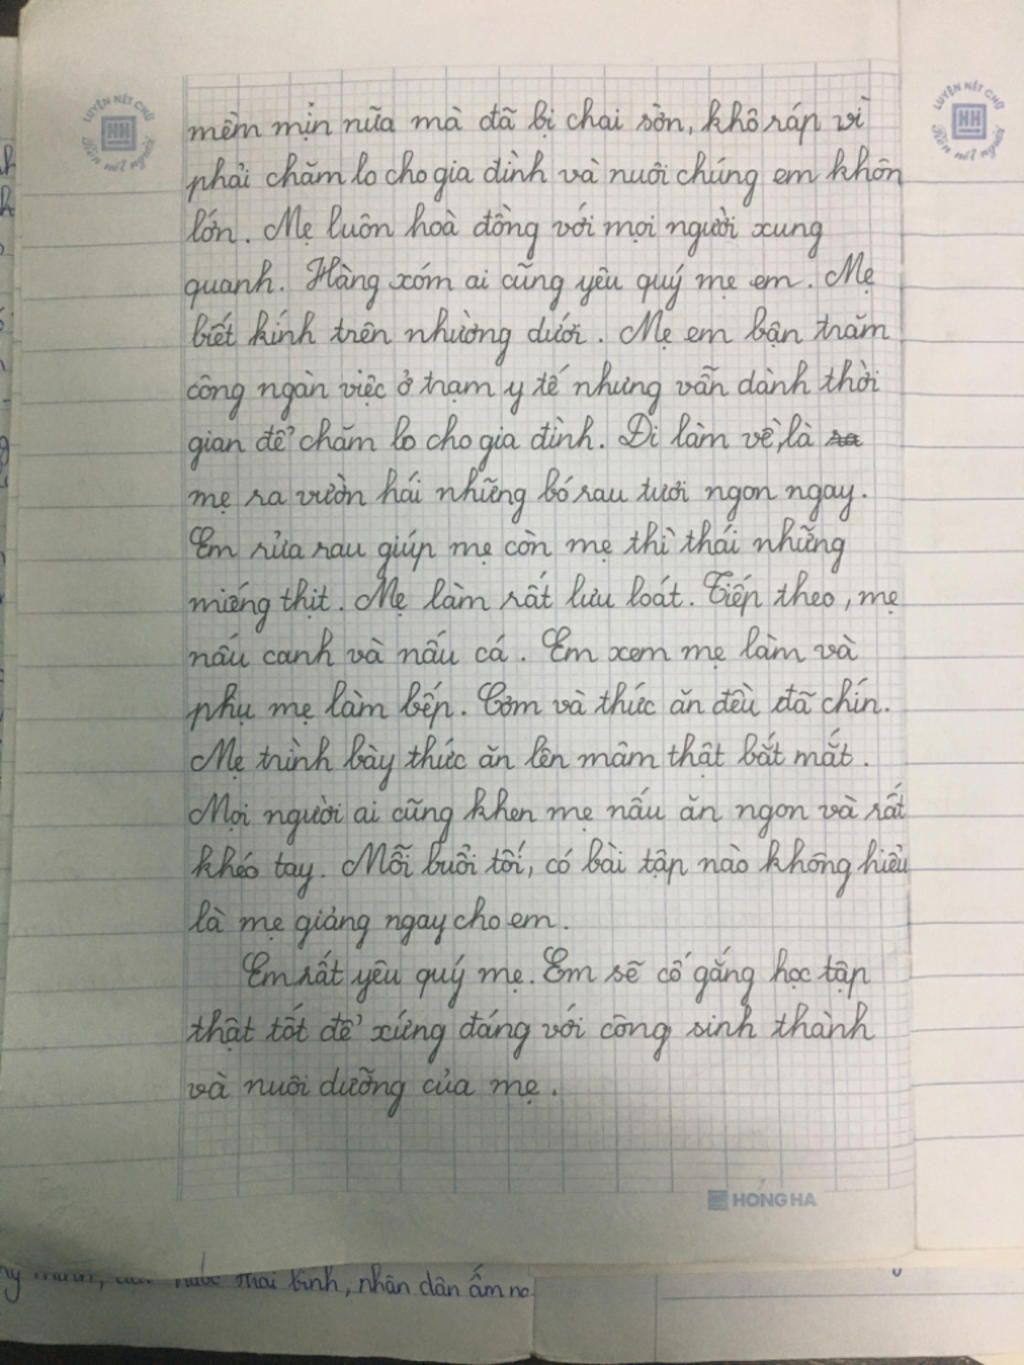 LUYỆN NÉT CHỮ
Rèn nết người
LUYỆN NÉT CHỮ
Rèn nết người
mềm mịn nữa mà đã bị chai sờn, khô ráp vì
phải chăm lo cho gia đình và nuôi chúng em khôn
lớn. Mẹ luôn hoà đồng với mọi người xung
quanh. Hàng xóm ai cũng yêu quý mẹ em. Mẹ
biết kính trên nhường dưới. Mẹ em bận trăm
công ngàn việc ở trạm y tế nhưng vẫn dành thời
gian để chăm lo cho gia đình. Đi làm về, là
mẹ ra vườn hái những bó rau tươi ngon ngay.
Em rửa rau giúp mẹ còn mẹ thì thái những
miếng thịt. Mẹ làm rất lưu loát. Tiếp theo, mẹ
nấu canh và nấu cá. Em xem mẹ làm và
phụ mẹ làm bếp. Cơm và thức ăn đều đã chín.
Mẹ trình bày thức ăn lên mâm thật bắt mắt.
Mọi người ai cũng khen mẹ nấu ăn ngon và rất
khéo tay. Mỗi buổi tối, có bài tập nào không hiểu
là mẹ giảng ngay cho em.
Em rất yêu quý mẹ. Em sẽ cố gắng học tập
thật tốt để xứng đáng với công sinh thành
và nuôi dưỡng của mẹ.
HỒNG HÀ
thái bình, nhân dân ấm no